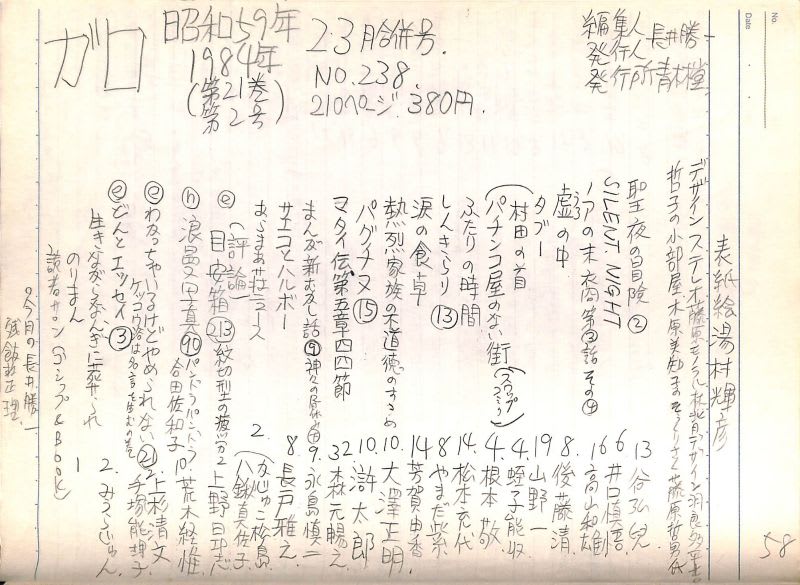 No.
Date
ガロ
昭和59年
1984年
(第21巻
第2号)
2・3月合併号.
NO.238.
210ページ. 380円.
編集人
発行人 長井勝一
発行所 青林堂
表紙絵 湯村輝彦
デザイン ステレオ藤原モノラル杜昔
哲子の小部屋 木原美知子のそっくりさん 藤原哲男氏
聖夜の冒険② 13 谷弘兒
SILENT NIGHT 6 井口慎吾
ノアの末裔 第③話 その④ 16 高山和雄
虚の中 8. 後藤清
タブー 19 山野一
村田の首 4. 蛭子能収
(パチンコ屋のない街 (スワップコミック) 4. 根本敬
ふたりの時間 14. 松本充代
しんきらり ⑬ 8 やまだ紫
涙の食卓 14 芳賀由香
熱烈家族の不道徳のすすめ 10. 大澤正明
パグナヌ ⑮ 10. 滸太郎
マタイ伝第五章四四節 32 森元暢之
まんが新むかし話⑨ 神々の尿宙 9. 永島慎二
サエコとハルボー 8. 長戸雅之
あらまあ荘ニュース 2. (かじゅこ松島
八鍬真佐子
(評論)
ⓔ 目安箱 213 紋切型の疲労 2 上野昂志
ⓗ 浪曼写真 90 パンドラパンドラ 合田佐和子 10 荒木経惟
ⓔ わかっちゃいるけどやめられない ㉑ 2. 上杉清文
ケッコウな洛は名言を生むの巻 手塚能理子
ⓔ どんとエッセイ ③ 2. みうらじゅん
生き ながしなんぎに葬られ
のりまん 1
読者サロン (ゴシップ&Book)
◎今月の長井勝一
鉞飯社正理
58